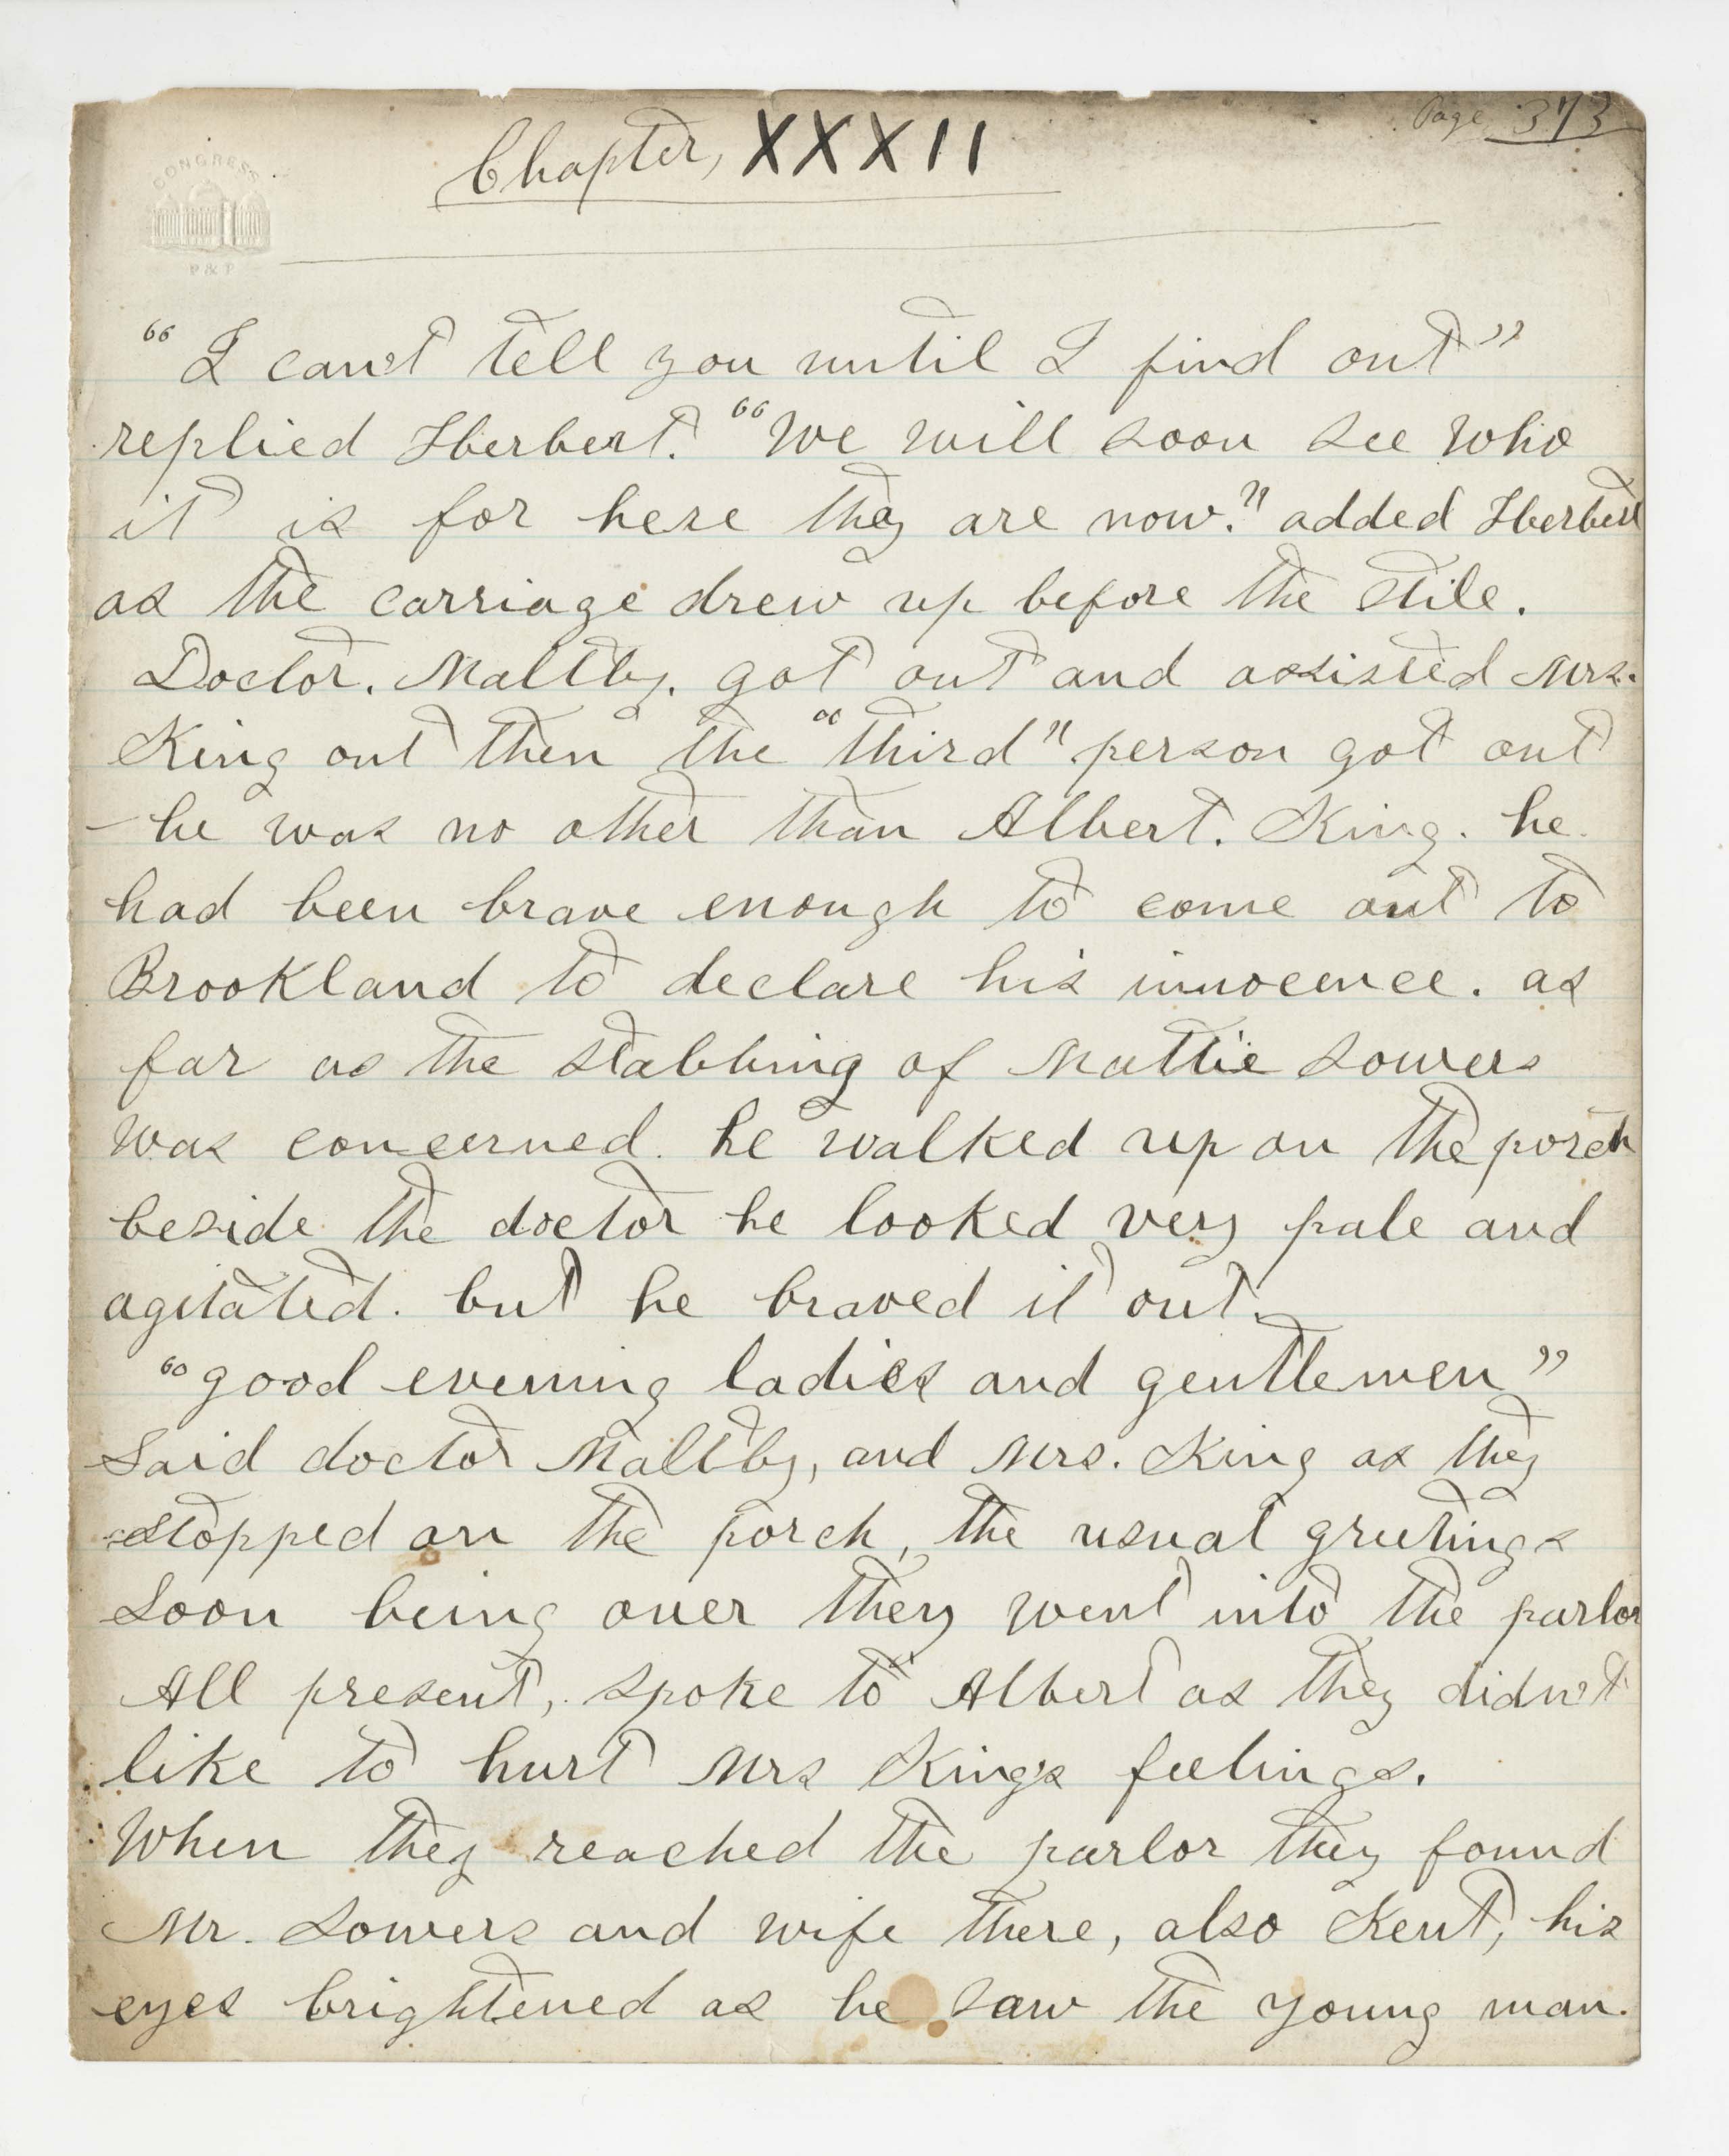 Page 373
Chapter, XXXII
CONGRESS
P & P
"I can't tell you until I find out"
replied Herbert. "We will soon see who
it is for here they are now." added Herbert
as the carriage drew up before the stile.
Doctor. Maltby. got out and assisted Mrs.
King out then the "third" person got out
he was no other than Albert. King. he
had been brave enough to come out to
Brookland to declare his innocence. as
far as the stabbing of Mattie Sowers
was concerned. he walked up on the porch
beside the doctor he looked very pale and
agitated. but he braved it out.
"good evening ladies and gentlemen"
Said doctor Maltby, and Mrs. King as they
stopped on the porch, the usual greetings
soon being over they went into the parlor
All present, spoke to Albert as they didn't
like to hurt Mrs King's feelings.
When they reached the parlor they found
Mr. Sowers and wife there, also Kent, his
eyes brightened as he saw the young man.